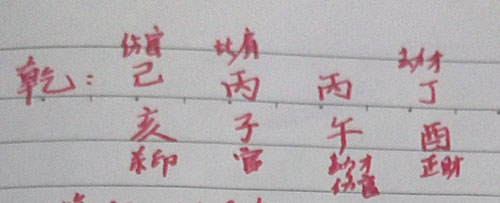 伤官 比肩 劫才
乾: 己 丙 丙 丁
亥 子 午 酉
杀印 官 劫才 正财
伤官